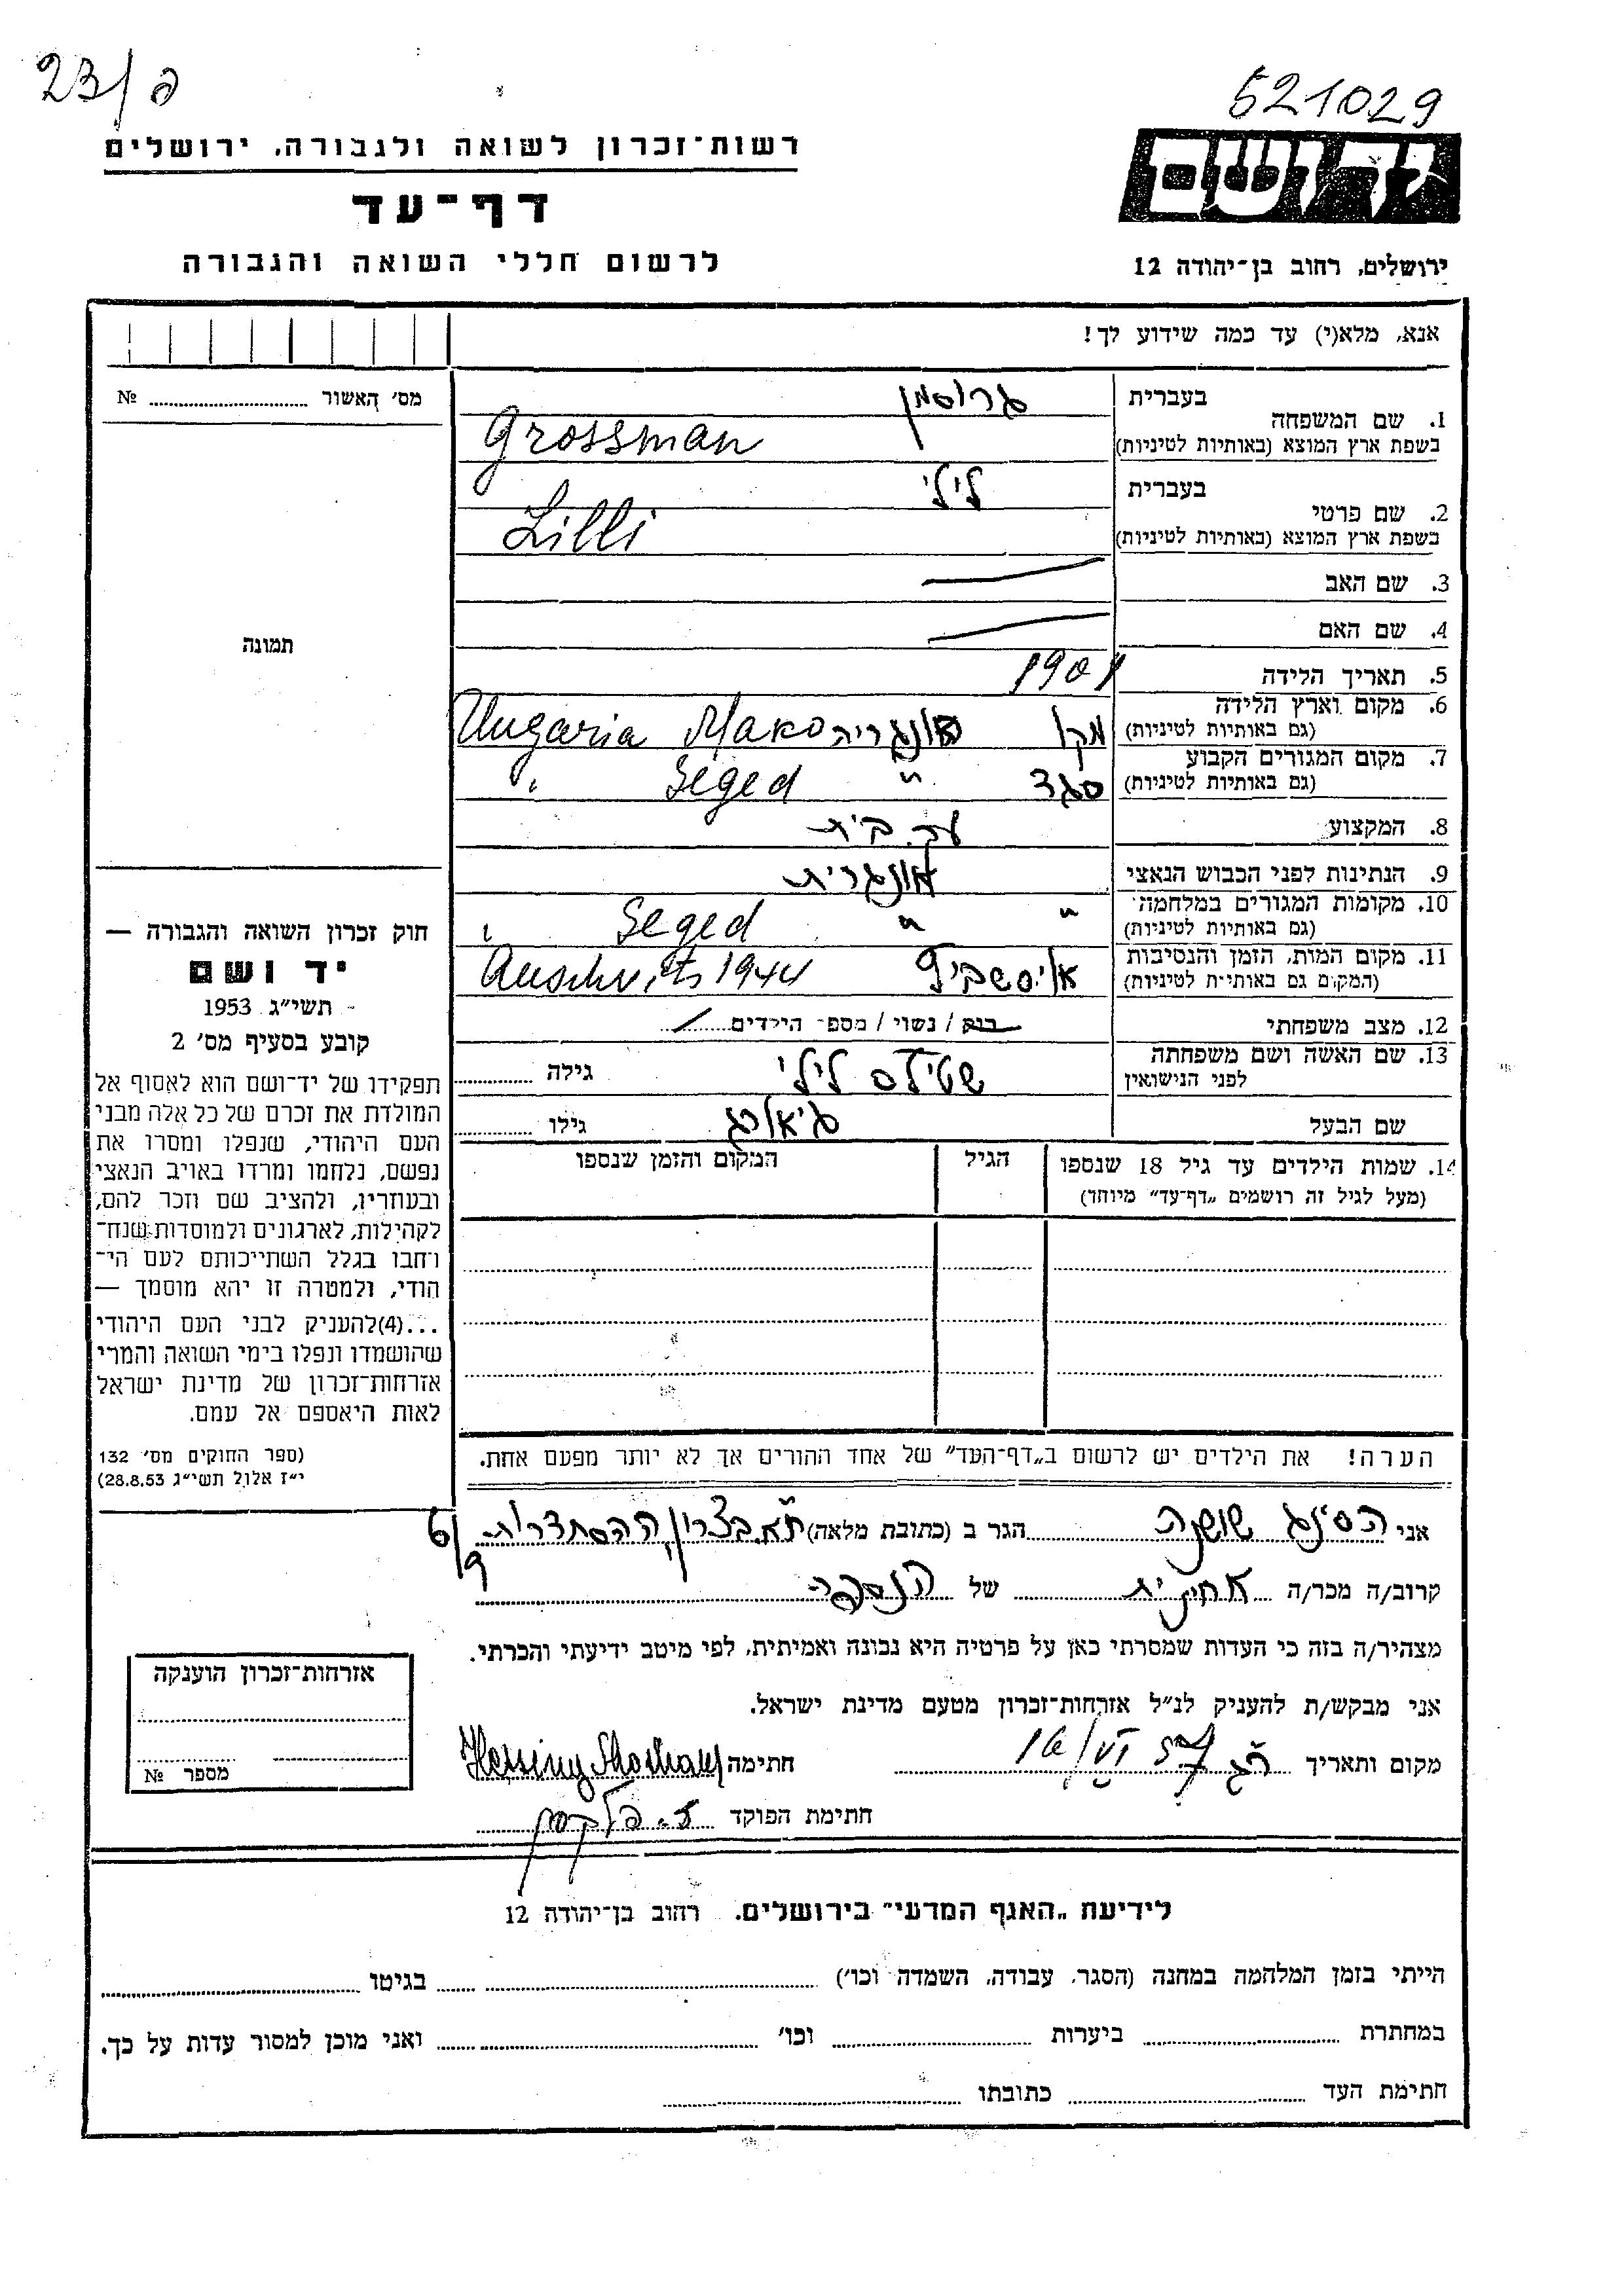 23/ פ
521029
רשות־זכרון לשואה ולגבורה, ירושלים
יד ושם
דף־עד
לרשום חללי השואה והגבורה
ירושלים, רחוב בן־יהודה 12
אנא, מלא(י) עד כמה שידוע לך!
מס׳ האשור № 
1. שם המשפחה בעברית גרוסמן
בשפת ארץ המוצא (באותיות לטיניות) Grossman
2. שם פרטי בעברית לילי
בשפת ארץ המוצא (באותיות לטיניות) Lilli
3. שם האב
4. שם האם
5. תאריך הלידה 1901
6. מקום וארץ הלידה
(גם באותיות לטיניות) מקו אונגריה Mako Ungaria
7. מקום המגורים הקבוע
(גם באותיות לטיניות) סגד " Seged "
8. המקצוע עק. בית
9. הנתינות לפני הכבוש הנאצי אונגרית
10. מקומות המגורים במלחמה
(גם באותיות לטיניות) " " Seged "
11. מקום המות, הזמן והנסיבות
(המקום גם באותיות לטיניות) אוישביץ Auschvits 1944
12. מצב משפחתי רוק / נשוי / מספר הילדים
13. שם האשה ושם משפחתה
לפני הנישואין שטילם לילי גילה
שם הבעל גיאורג גילו
14. שמות הילדים עד גיל 18 שנספו הגיל המקום והזמן שנספו
(מעל לגיל זה רושמים „דף־עד” מיוחד)
הערה! את הילדים יש לרשום ב„דף־העד” של אחד ההורים אך לא יותר מפעם אחת.
תמונה
חוק זכרון השואה והגבורה —
יד ושם
תשי״ג 1953
קובע בסעיף מס׳ 2
תפקידו של יד־ושם הוא לאסוף אל
המולדת את זכרם של כל אלה מבני
העם היהודי, שנפלו ומסרו את
נפשם, נלחמו ומרדו באויב הנאצי
ובעוזריו, ולהציב שם וזכר להם,
לקהילות, לארגונים ולמוסדות שנח־
רחבו בגלל השתייכותם לעם הי־
הודי, ולמטרה זו יהא מוסמך —
...(4) להעניק לבני העם היהודי
שהושמדו ונפלו בימי השואה והמרי
אזרחות־זכרון של מדינת ישראל
לאות היאספם אל עמם.
(ספר החוקים מס׳ 132
י״ז אלול תשי״ג 28.8.53)
אני הסינג שושנה הגר ב (כתובת מלאה) ת״א. בצרון, ההסתדרות 6/9
קרוב/ה מכר/ה אחינית של הנספה
מצהיר/ה בזה כי העדות שמסרתי כאן על פרטיה היא נכונה ואמיתית, לפי מיטב ידיעתי והכרתי.
אני מבקש/ת להעניק לנ״ל אזרחות־זכרון מטעם מדינת ישראל.
מקום ותאריך ר״ג 16/VI 57 חתימה Hessing Shoshana
חתימת הפוקד
אזרחות־זכרון הוענקה
מספר №
לידיעת „האגף המדעי” בירושלים. רחוב בן־יהודה 12
הייתי בזמן המלחמה במחנה (הסגר, עבודה, השמדה וכו׳) בגיטו
במחתרת ביערות וכו׳ ואני מוכן למסור עדות על כך.
חתימת העד כתובתו